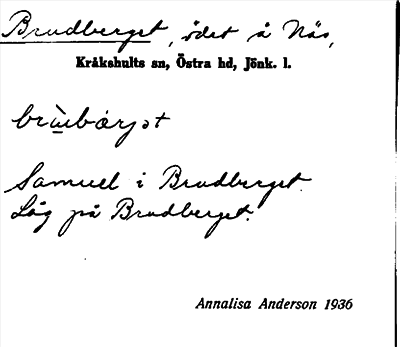 Brudberget, ödet å Näs,
Kråkshults sn, Östra hd, Jönk. l.
brùbärjət
Samuel i Brudberget.
Låg på Brudberget.
Annalisa Anderson 1936